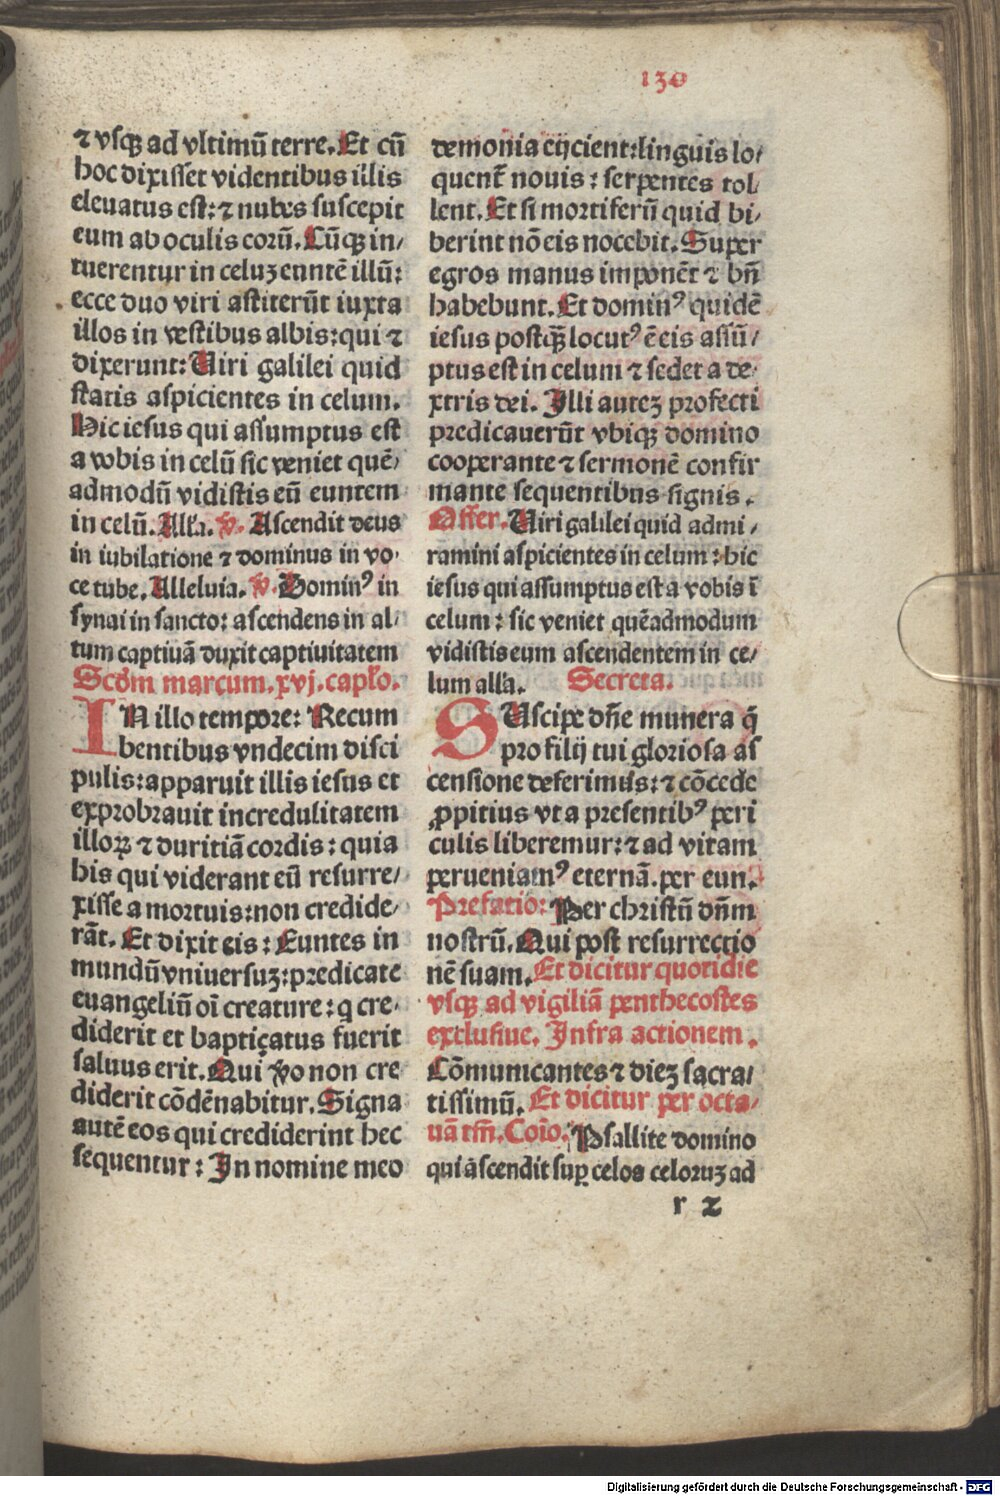 130
⁊ vsqꝫ ad vltimū terre. Et cū
hoc dixisset videntibus illis
eleuatus est: ⁊ nubes suscepit
eum ab oculis eorū. Cūqꝫ in/
tuerentur in celuꝫ euntē illū:
ecce duo viri astiterūt iuxta
illos in vestibus albis: qui ⁊
dixerunt: Uiri galilei quid
statis aspicientes in celum.
Hic iesus qui assumptus est
a vobis in celū sic veniet quē/
admodū vidistis eū euntem
in celū. Alla. ℣. Ascendit deus
in iubilatione ⁊ dominus in vo·
ce tube. Alleluia. ℣. Dominꝰ in
synai in sancto: ascendens in al·
tum captiuā duxit captiuitatem
Scd̄m marcum. xvj. capło.
IN illo tempore: Recum
bentibus vndecim disci
pulis: apparuit illis iesus et
exprobrauit incredulitatem
illoꝝ ⁊ duritiā cordis: quia
his qui viderant eū resurre/
xisse a mortuis: non credide/
rāt. Et dixit eis: Euntes in
mundū vniuersuꝫ: predicate
euangeliū oī creature: q cre·
diderit et baptiçatus fuerit
saluus erit. Qui v̄o non cre
diderit cōdēnabitur. Signa
autē eos qui crediderint hec
sequentur: In nomine meo
demonia eijcient: linguis lo/
quent̄ nouis: serpentes tol·
lent. Et si mortiferū quid bi/
berint nō eis nocebit. Super
egros manus imponēt ⁊ bn̄
habebunt. Et dominꝰ quidē
iesus postqꝫ̄ locutꝰ ē eis assū/
ptus est in celum ⁊ sedet a de·
xtris dei. Illi auteꝫ profecti
predicauerūt vbiqꝫ domino
cooperante ⁊ sermonē confir
mante sequentibus signis.
Offer. Uiri galilei quid admi/
ramini aspicientes in celum: hic
iesus qui assumptus est a vobis ī
celum: sic veniet quēadmodum
vidistis eum ascendentem in ce/
lum alla. Secreta.
SUscipe dn̄e munera q̄
pro filij tui gloriosa as
censione deferimus: ⁊ cōcede
ꝓpitius vt a presentibꝰ peri
culis liberemur: ⁊ ad vitam
perueniamꝰ eternā. per eun.
Prefatio: Per christū dn̄m
nostrū. Qui post resurrectio
nē suam. Et dicitur quotidie
vsqꝫ ad vigiliā penthecostes
exclusiue. Infra actionem.
Cōmunicantes ⁊ dieꝫ sacra/
tissimū. Et dicitur per octa/
uā tm̄. Coīo. Psallite domino
qui ascendit suꝑ celos celoruꝫ ad
r 2
Digitalisierung gefördert durch die Deutsche Forschungsgemeinschaft - DFG